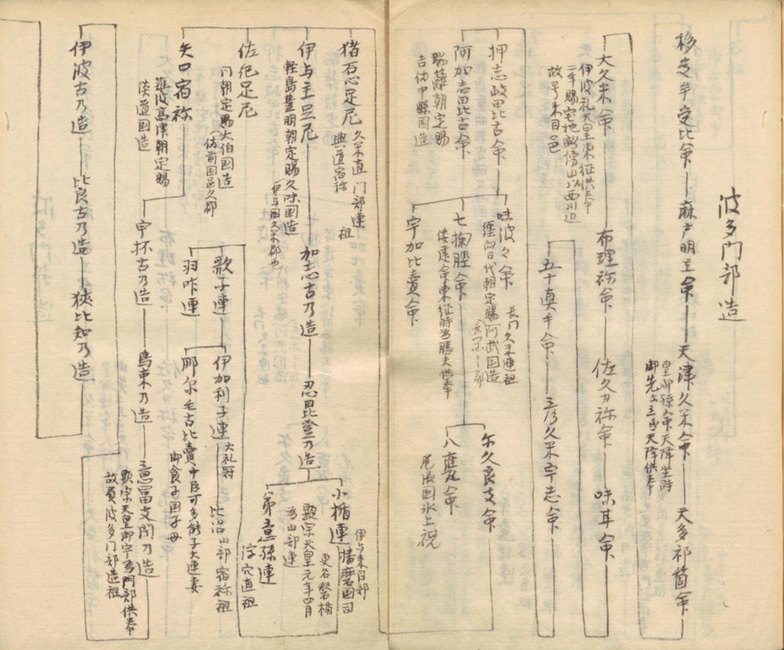 波多門部造
移受牟受比命 麻戸明主命 天津久米命 天多祁箇命
皇御孫命天降坐時
御先尓立而天降供奉
大久米命 布理祢命 佐久刀祢命 味耳命
伊波礼天皇東征供奉
二年賜宅地於傍山以西川辺
故号来目邑
五十真手命 三乃久米宇志命
押志岐毘古命 味波々命 爾久良支命
長門久米連祖
纏向日代朝定賜阿武国造
阿加志毘古命 七掬脛命 八甕命
瑞籬朝定賜
吉備中縣国造
倭建命東征時為膳夫供奉
尾張国氷上祝
宇加比賣命
猪石心足尼
久米直 門部連 祖
興道宿祢
伊与主足尼 加志古乃造 忍毘登乃造 小楯連
軽島豊明朝定賜久味国造
伊与国久米郡也
伊与来目部
播磨国司
更名磐楯
顕宗天皇元年四月
為山部連
弟意孫連
浮穴直祖
佐紀足尼 歌子連 伊加利子連
門朝定賜大伯国造
備前国邑久郡
大礼冠
山部宿祢祖
羽咋連 那尓毛古比賣
中臣可多能子大連妻
御食子国子母
矢口宿祢 宇杯古乃造 鳥木乃造 意富支閇乃造
難波高津朝定賜
淡道国造
顕宗天皇御宇為門部供奉
故負波多門部造祖
伊波古乃造 比良古乃造 狭比知乃造